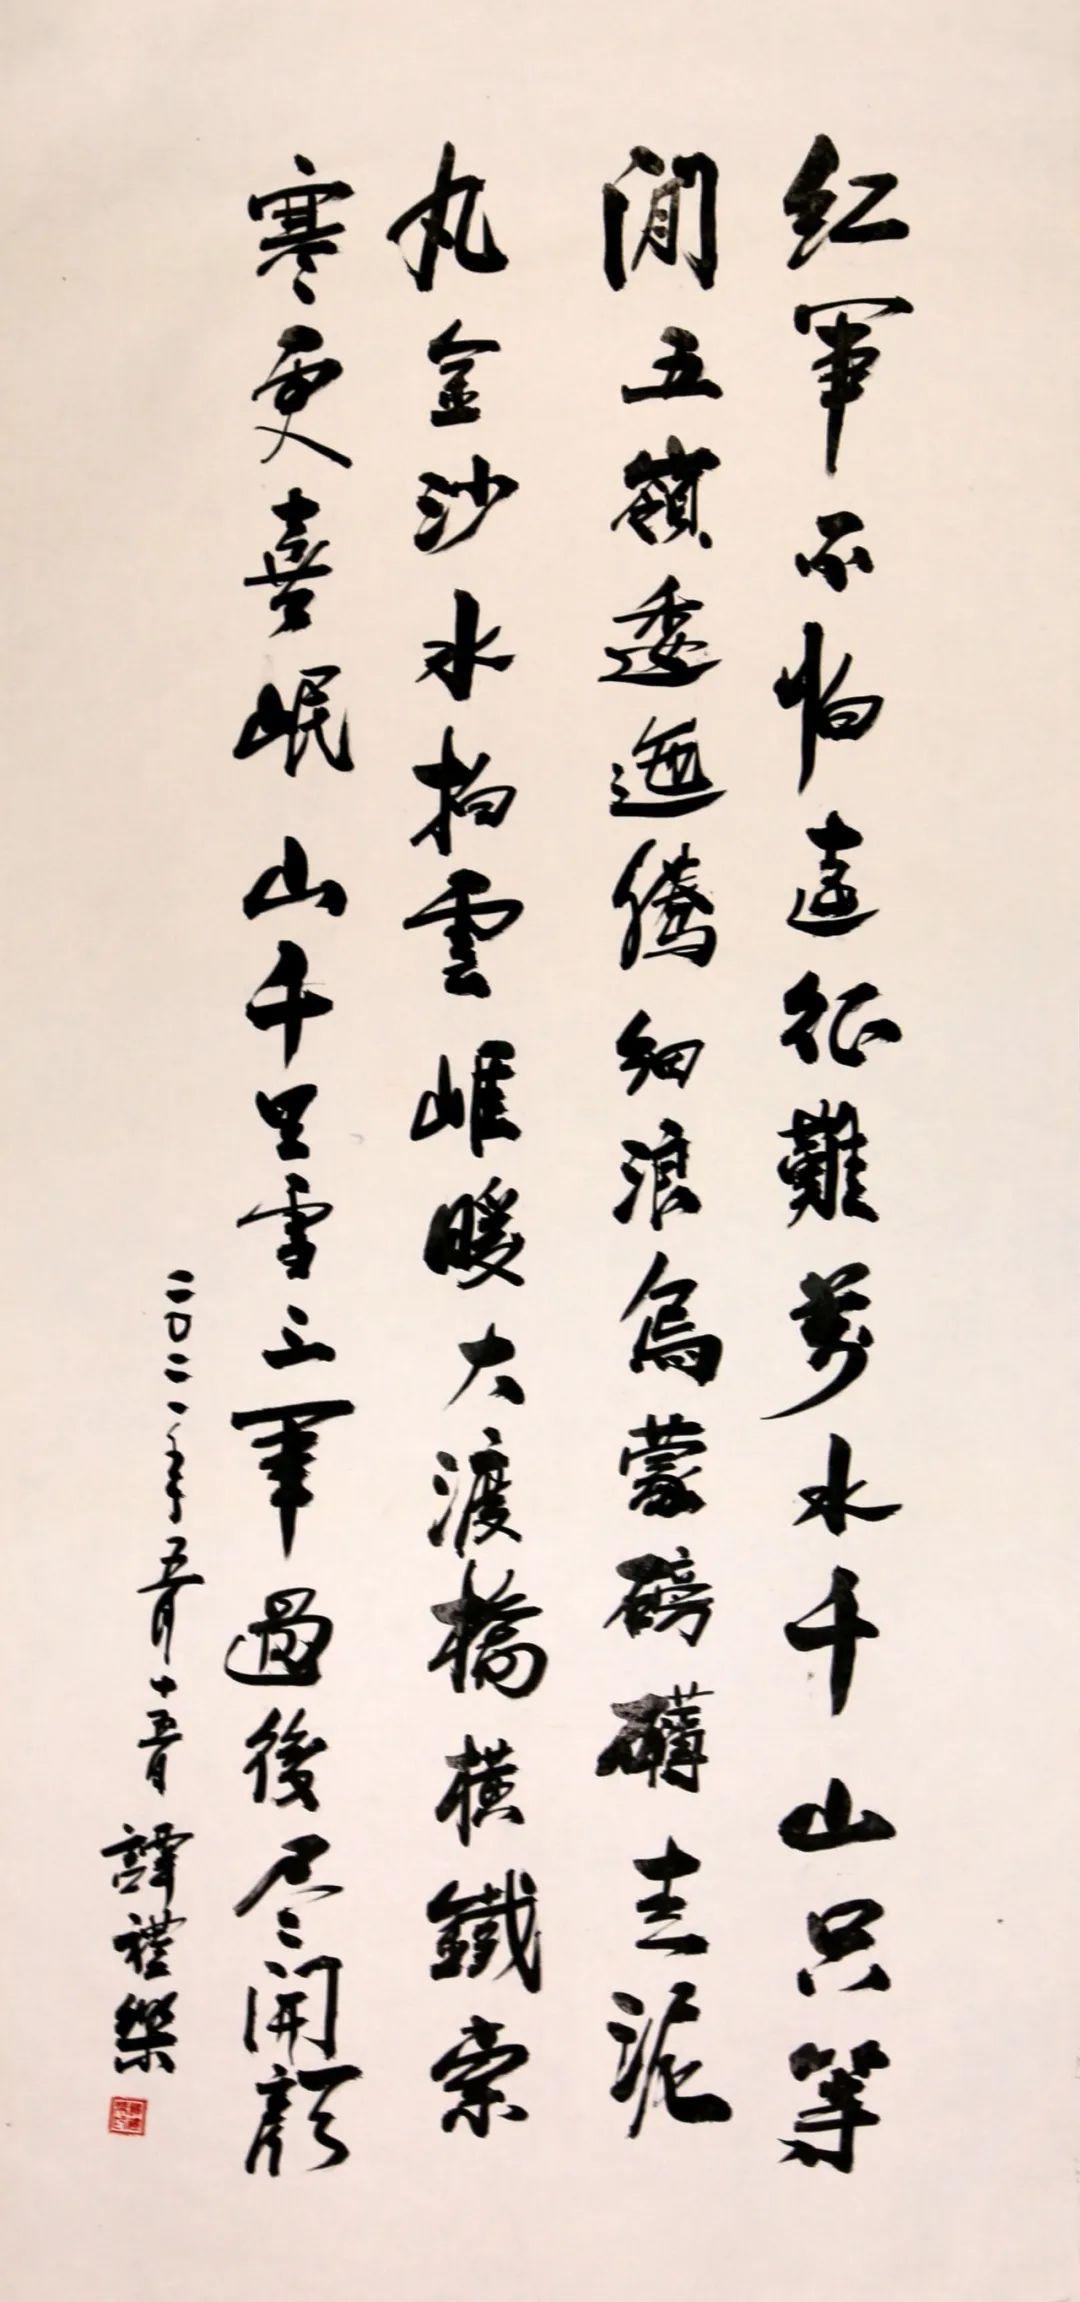 红軍不怕遠征難萬水千山只等
閒五嶺逶迤騰細浪烏蒙磅礴走泥
丸金沙水拍雲崖暖大渡橋橫鐵索
寒更喜岷山千里雪三軍過後尽開顏
二〇二一年五月十五日 譚禮樂